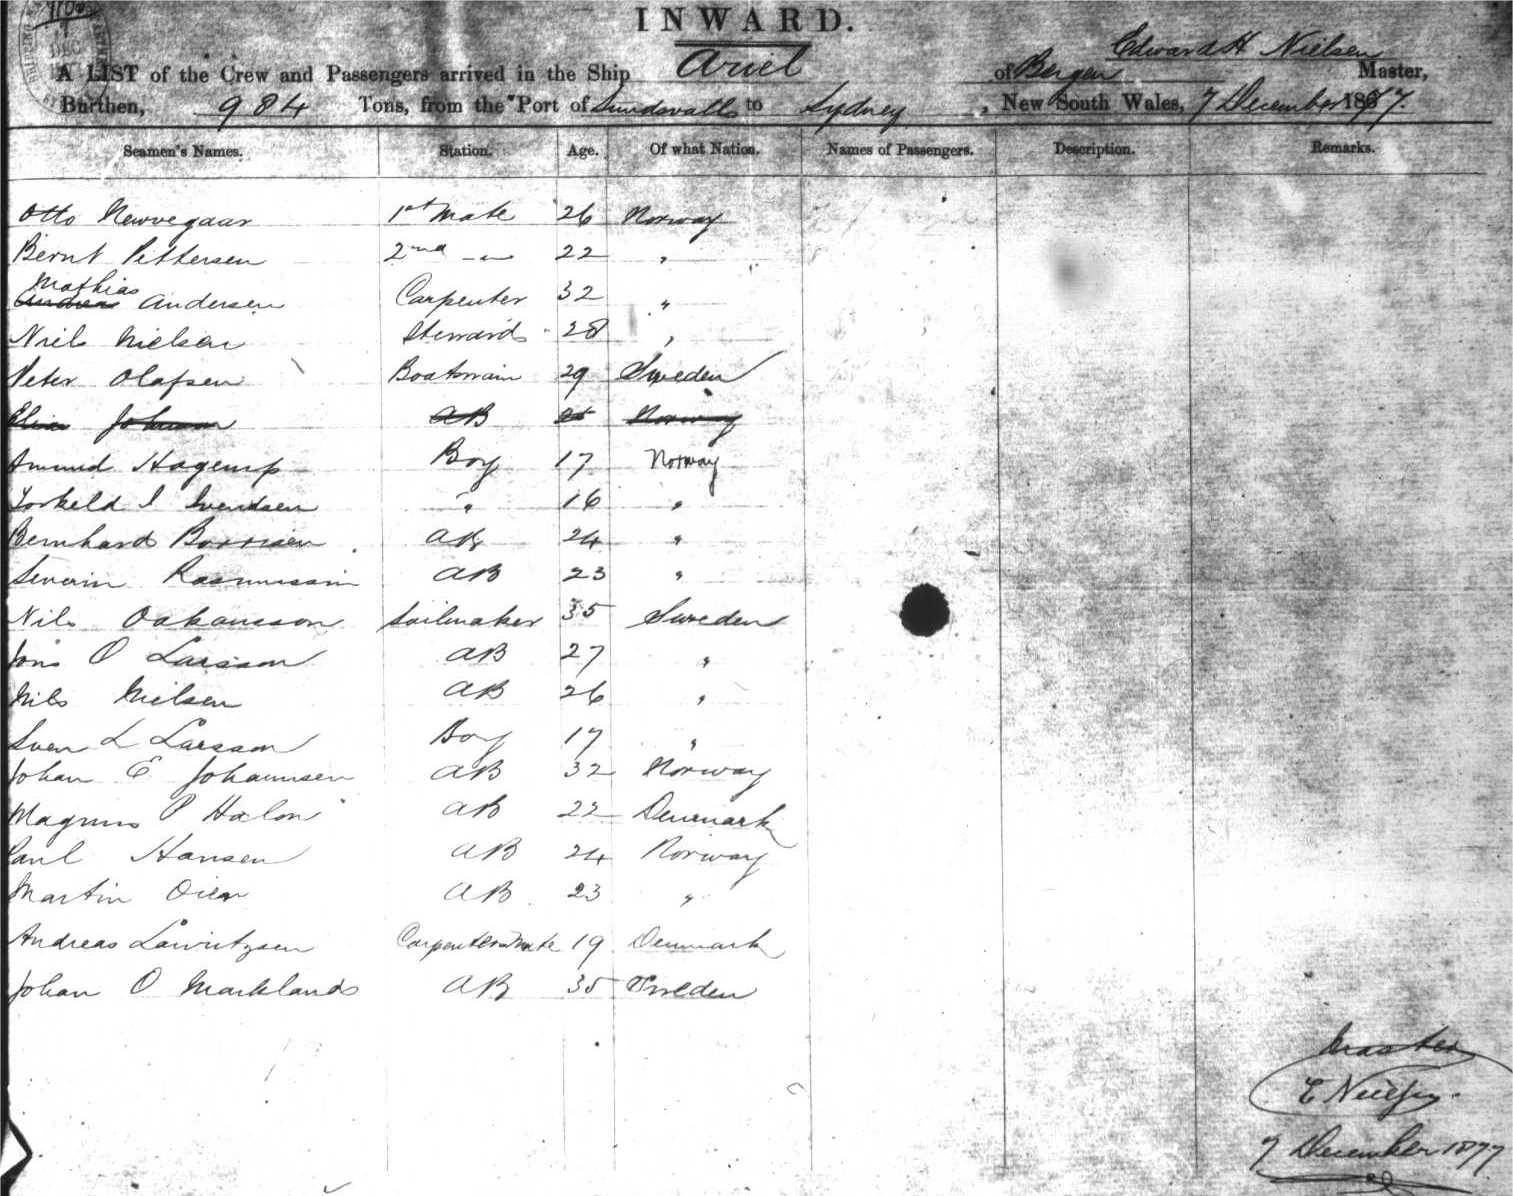 INWARD.
Edward H Nielsen
A LIST of the Crew and Passengers arrived in the Ship Ariel of Bergen Master,
Burthen, 984 Tons, from the Port of Sundsvalls to Sydney, New South Wales, 7 December 1877.
Seamen's Names. Station. Age. Of what Nation. Names of Passengers. Description. Remarks.
Otto 1st Mate 26 Norway
Bernt Pettersen 2nd " 22 "
Mathias
Andreas Andersen Carpenter 32 "
Niels Nielsen Steward 28 "
Peter Olafsen Boatswain 29 Sweden
Johansen AB Norway
Amund Hagerup Boy 17 Norway
Torkeld I Svendsen " 16 "
Bernhard AB 24 "
Severin Rasmussin AB 23 "
Nils Oakansson Sailmaker 35 Sweden
Jons O Larsson AB 27 "
Nils Nielsen AB 26 "
Sven L Larsson Boy 17 "
Johan E Johannsen AB 32 Norway
Magnus P Holm AB 22 Denmark
Paul Hansen AB 24 Norway
Martin AB 23 "
Andreas Lauritzsen Carpenters Mate 19 Denmark
Johan O Marklands AB 35 Sweden
Master
E Nielsen.
7 December 1877